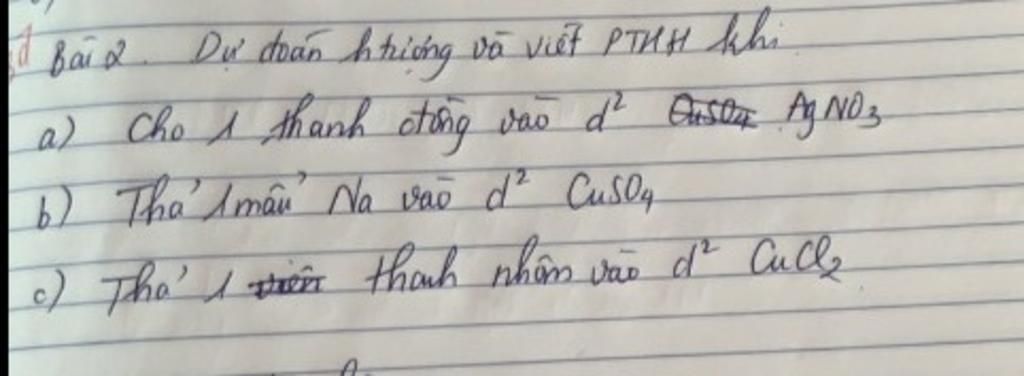 Bài 2. Dự đoán htượng và viết PTHH khi
a) Cho 1 thanh đồng vào d² CuSO4 AgNO3
b) Thả 1 mẩu Na vào d² CuSO4
c) Thả 1 viên thanh nhôm vào d² CuCl2